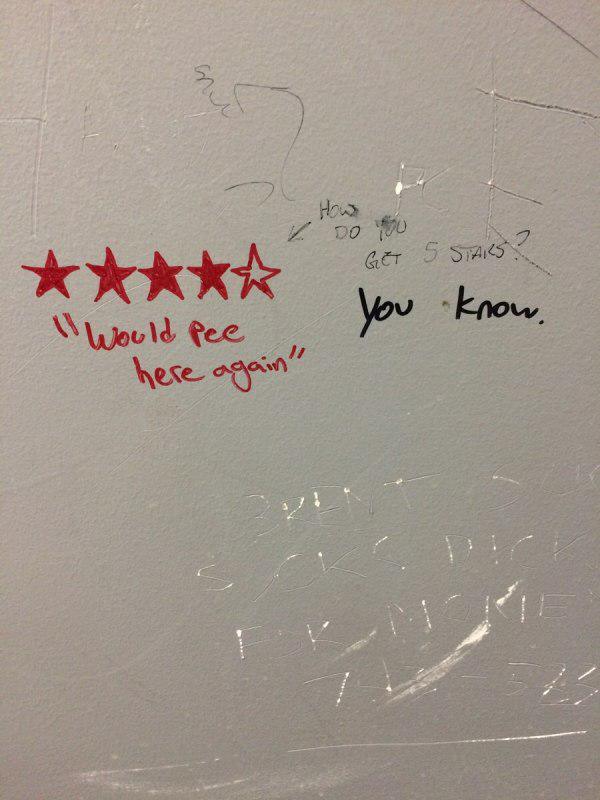 How
DO YOU
GET 5 STARS?
"Would Pee
here again"
You know.
BRENT
SUCKS DICK
FOR MONEY